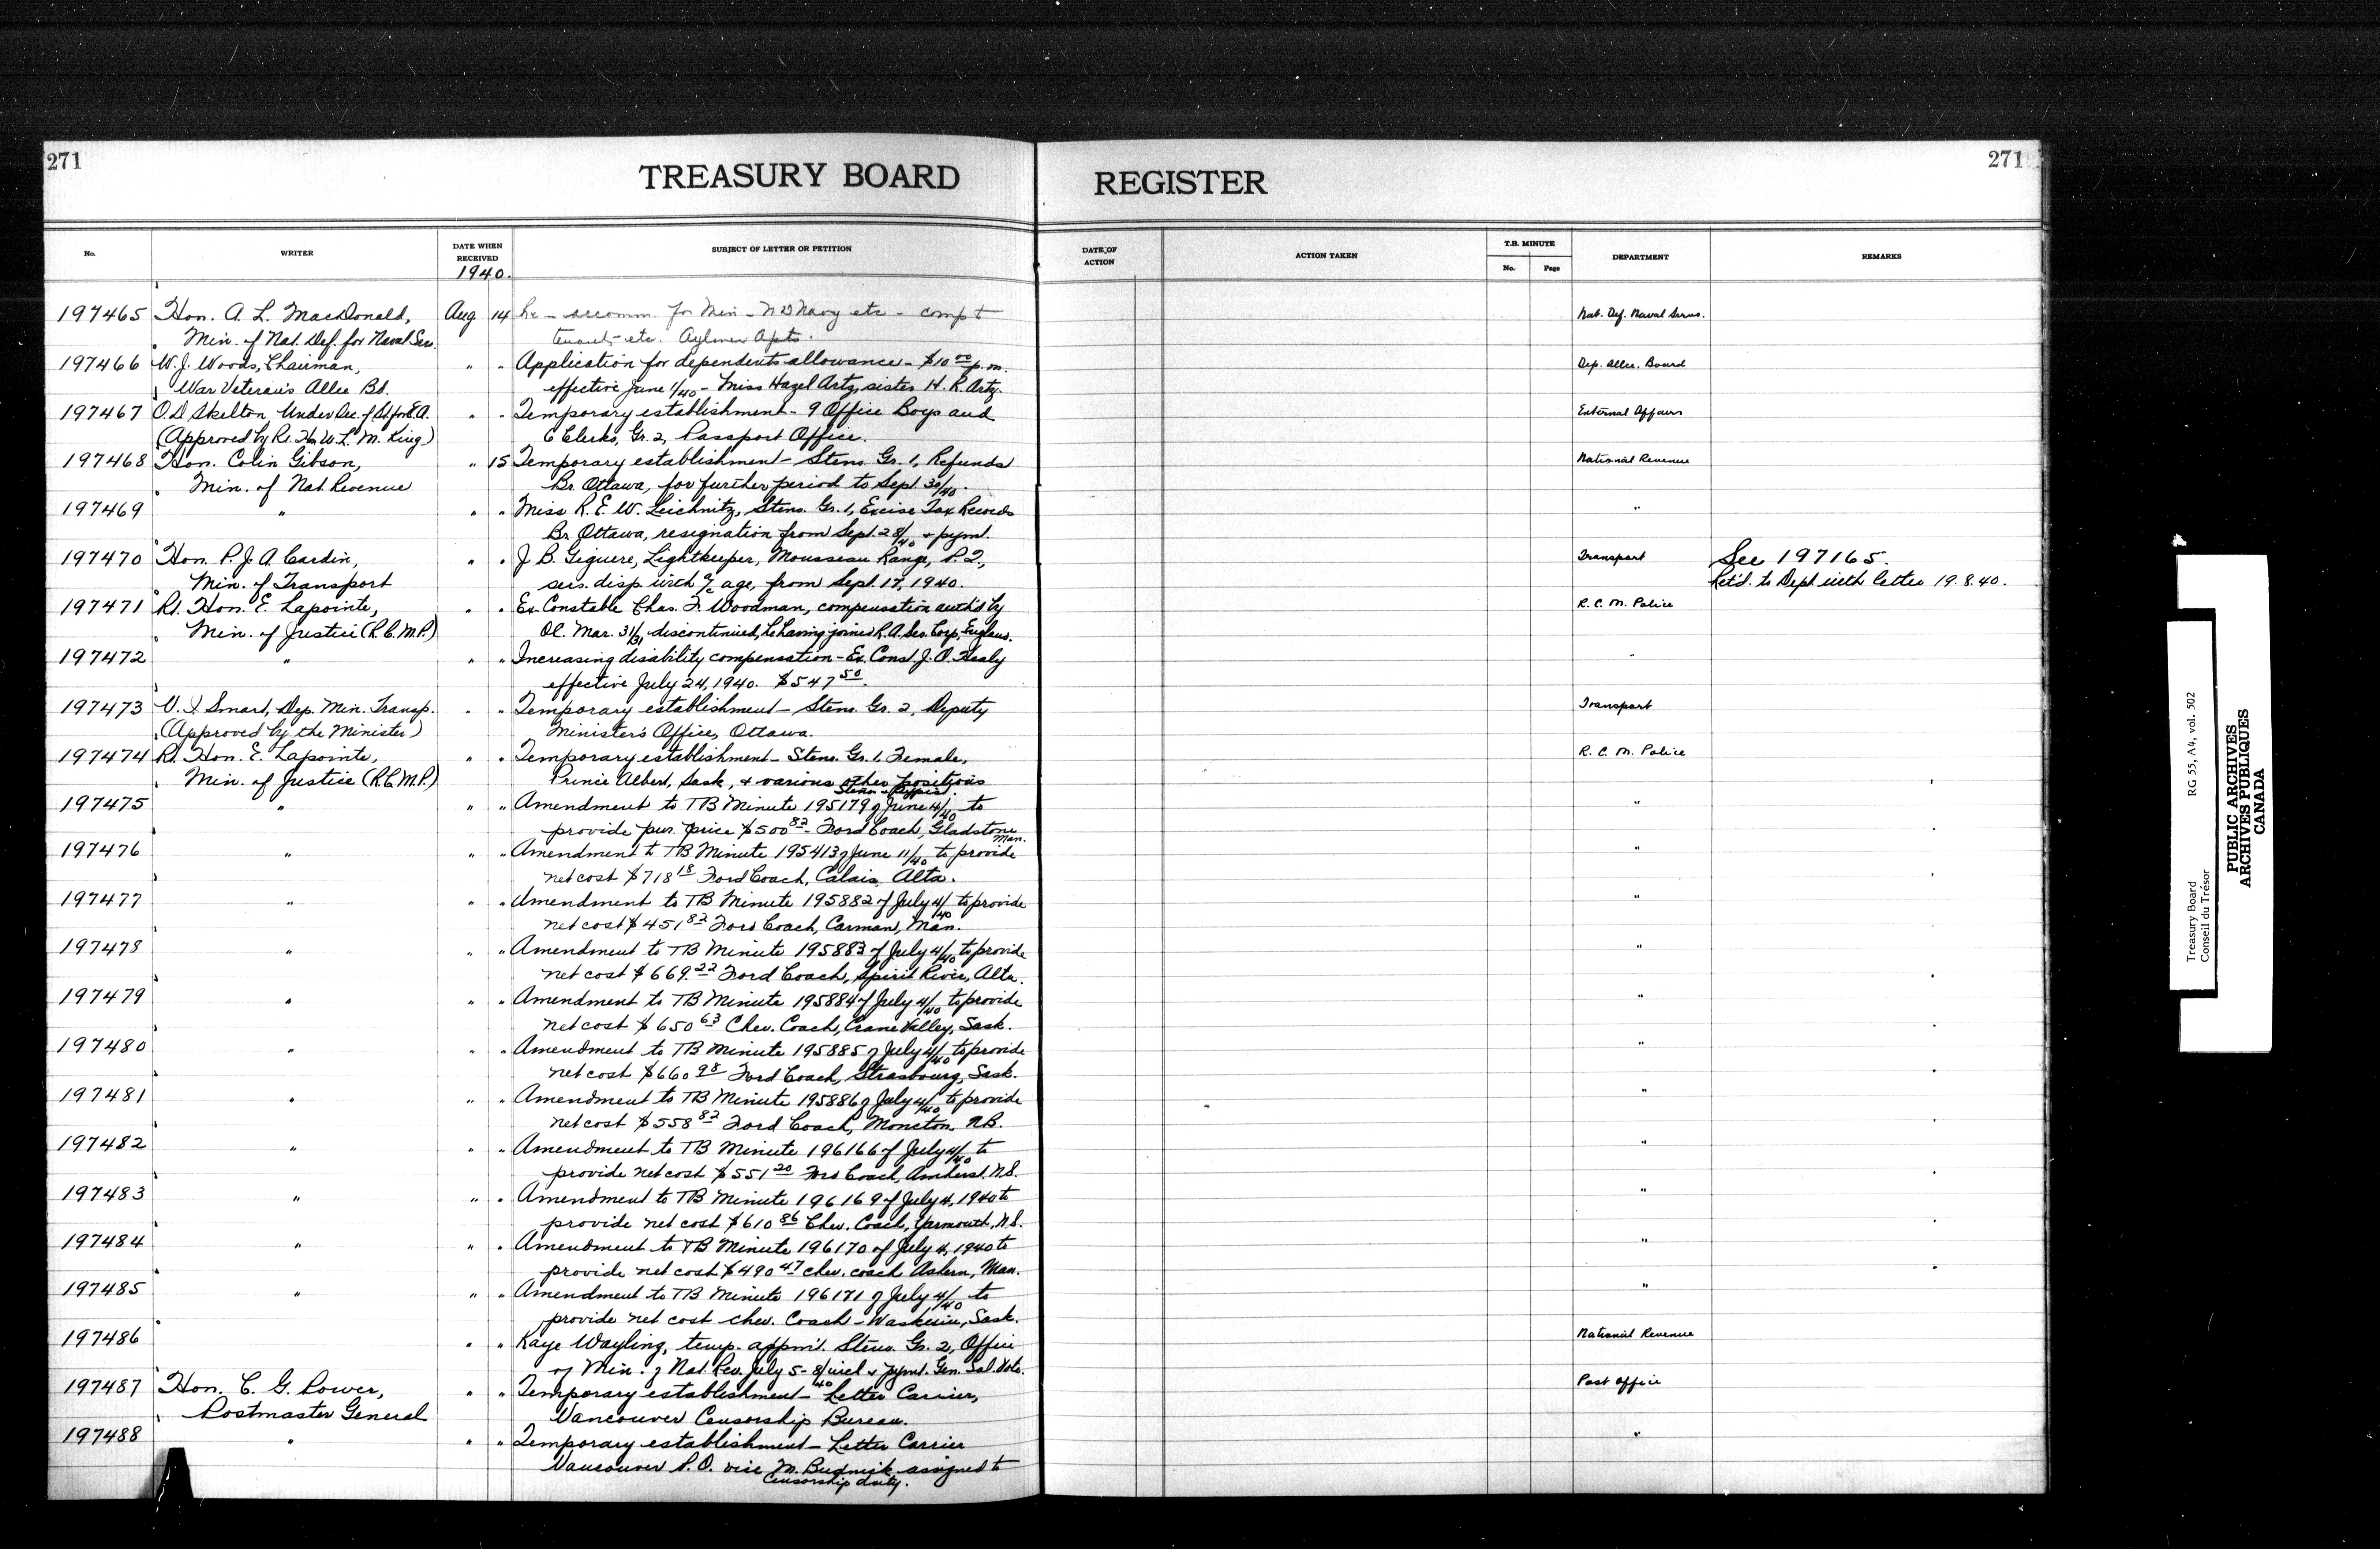 271
TREASURY BOARD REGISTER
271
No. WRITER DATE WHEN RECEIVED SUBJECT OF LETTER OR PETITION DATE OF ACTION ACTION TAKEN T.B. MINUTE No. Page DEPARTMENT REMARKS
1940.
197465 Hon. A. L. MacDonald, Aug 14 Re - accomm. for Min - N D Navy etc - comp't Nat. Def. Naval Servs.
Min. of Nat. Def. for Naval Ser. tenants etc. Aylmer Apts.
197466 W. J. Woods, Chairman, " " Application for dependents allowance - $10 00 p.m. Dep. Allce. Board
War Veteran's Allce Bd. effective June 1/40 - Miss Hazel Artz, sister H. R. Artz.
197467 O. D. Skelton Under Sec. of St. for E.A. " " Temporary establishment - 9 Office Boys and External Affairs
(Approved by Rt. Hon W. L. M. King) 6 Clerks, Gr. 2, Passport Office.
197468 Hon. Colin Gibson, " 15 Temporary establishment - Steno. Gr. 1, Refunds National Revenue
Min. of Nat. Revenue Br. Ottawa, for further period to Sept. 30/40.
197469 " " " Miss R. E. W. Leichnitz, Steno. Gr. 1, Excise Tax Records "
Br. Ottawa, resignation from Sept. 28/40 & pymt.
197470 Hon. P. J. A. Cardin, " " J. B. Giguere, Lightkeeper, Mousseau Range, P.Q., Transport See 197165.
Min. of Transport sers. disp. with a/c age, from Sept. 17, 1940. Ret'd. to Dept. with letter 19.8.40.
197471 Rt. Hon. E. Lapointe, " " Ex-Constable Chas. F. Woodman, compensation auth'd by R. C. M. Police
Min. of Justice (R.C.M.P.) OC. Mar. 31/31, discontinued, he having joined R.A. Ser. Corp, England.
197472 " " " Increasing disability compensation - Ex. Const. J. O. Healy "
effective July 24, 1940. $547 50.
197473 V. I. Smart, Dep. Min. Transp. " " Temporary establishment - Steno. Gr. 2, Deputy Transport
(Approved by the Minister) Minister's Office, Ottawa.
197474 Rt. Hon. E. Lapointe, " " Temporary establishment - Steno. Gr. 1, Female, R. C. M. Police
Min. of Justice (R.C.M.P.) Prince Albert, Sask, & various other positions
Steno & Typist.
197475 " " " Amendment to TB Minute 195179 of June 4/40 to "
provide pur. price $500 82 Ford Coach, Gladstone
Man.
197476 " " " Amendment to TB Minute 195413 of June 11/40 to provide "
net cost $718 18 Ford Coach, Calais, Alta.
197477 " " " Amendment to TB Minute 195882 of July 4/40 to provide "
net cost $451 82 Ford Coach, Carman, Man.
197478 " " " Amendment to TB Minute 195883 of July 4/40 to provide "
net cost $669. 22 Ford Coach, Spirit River, Alta.
197479 " " " Amendment to TB Minute 195884 of July 4/40 to provide "
net cost $650 63 Chev. Coach, Crane Valley, Sask.
197480 " " " Amendment to TB Minute 195885 of July 4/40 to provide "
net cost $660 98 Ford Coach, Strasbourg, Sask.
197481 " " " Amendment to TB Minute 195886 of July 4/40 to provide "
net cost $558 82 Ford Coach, Moncton, N.B.
197482 " " " Amendment to TB Minute 196166 of July 4/40 to "
provide net cost $551 20 Ford Coach, Amherst, N.S.
197483 " " " Amendment to TB Minute 196169 of July 4, 1940 to "
provide net cost $610 86 Chev. Coach, Yarmouth, N.S.
197484 " " " Amendment to TB Minute 196170 of July 4, 1940 to "
provide net cost $490 47 chev. coach Ashern, Man.
197485 " " " Amendment to TB Minute 196171 of July 4/40 to "
provide net cost chev. Coach - Waskesiu, Sask.
197486 " " Kaye Wayling, temp. appm't. Steno. Gr. 2, Office National Revenue
of Min. of Nat. Rev. July 5-8/40 incl & pymt. Gen. Sal. Vote.
197487 Hon. C. G. Power, " " Temporary establishment - Letter Carrier, Post Office
Postmaster General Vancouver Censorship Bureau.
197488 " " " Temporary establishment - Letter Carrier "
Vancouver P.O. vice M. Budnick assigned to
Censorship duty.
Treasury Board RG 55, A4, vol. 502
Conseil du Trésor
PUBLIC ARCHIVES
ARCHIVES PUBLIQUES
CANADA